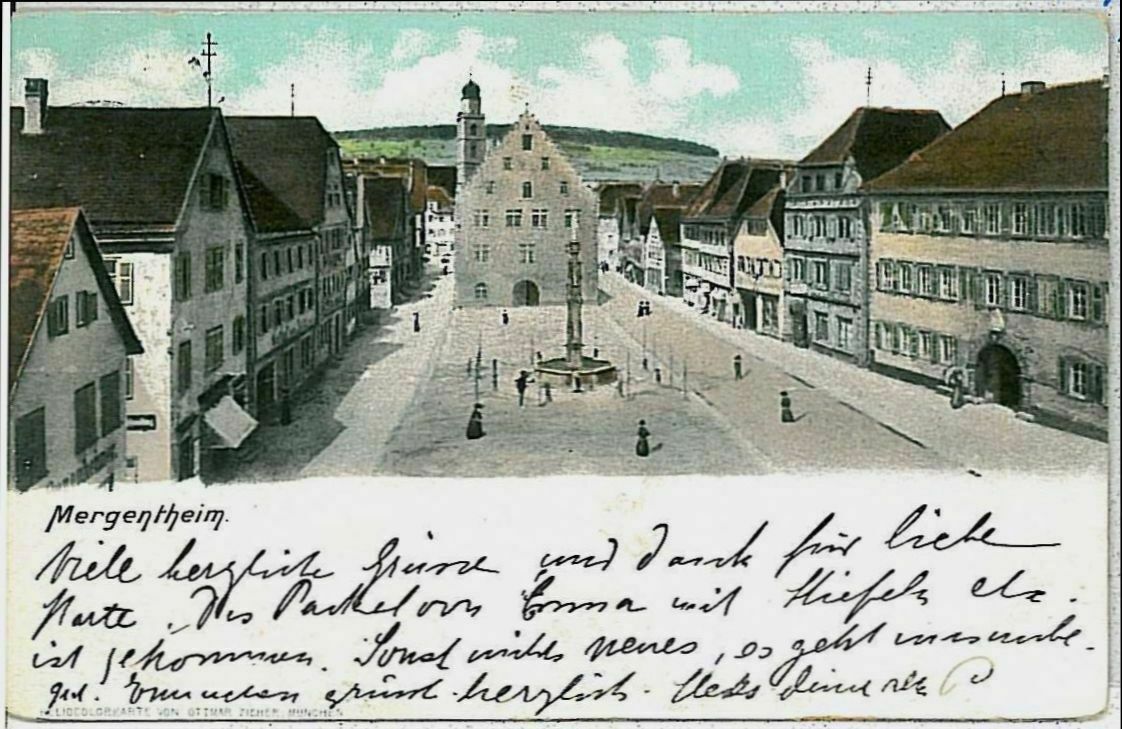 Mergentheim.
Viele herzliche Grüsse und Dank für liebe
Karte. Das Packet von Emma mit Stiefeln etc.
ist gekommen. Sonst nichts neues, es geht uns
grüsst herzlich. Stets deine
HELIOCOLORKARTE VON OTTMAR ZIEHER, MÜNCHEN